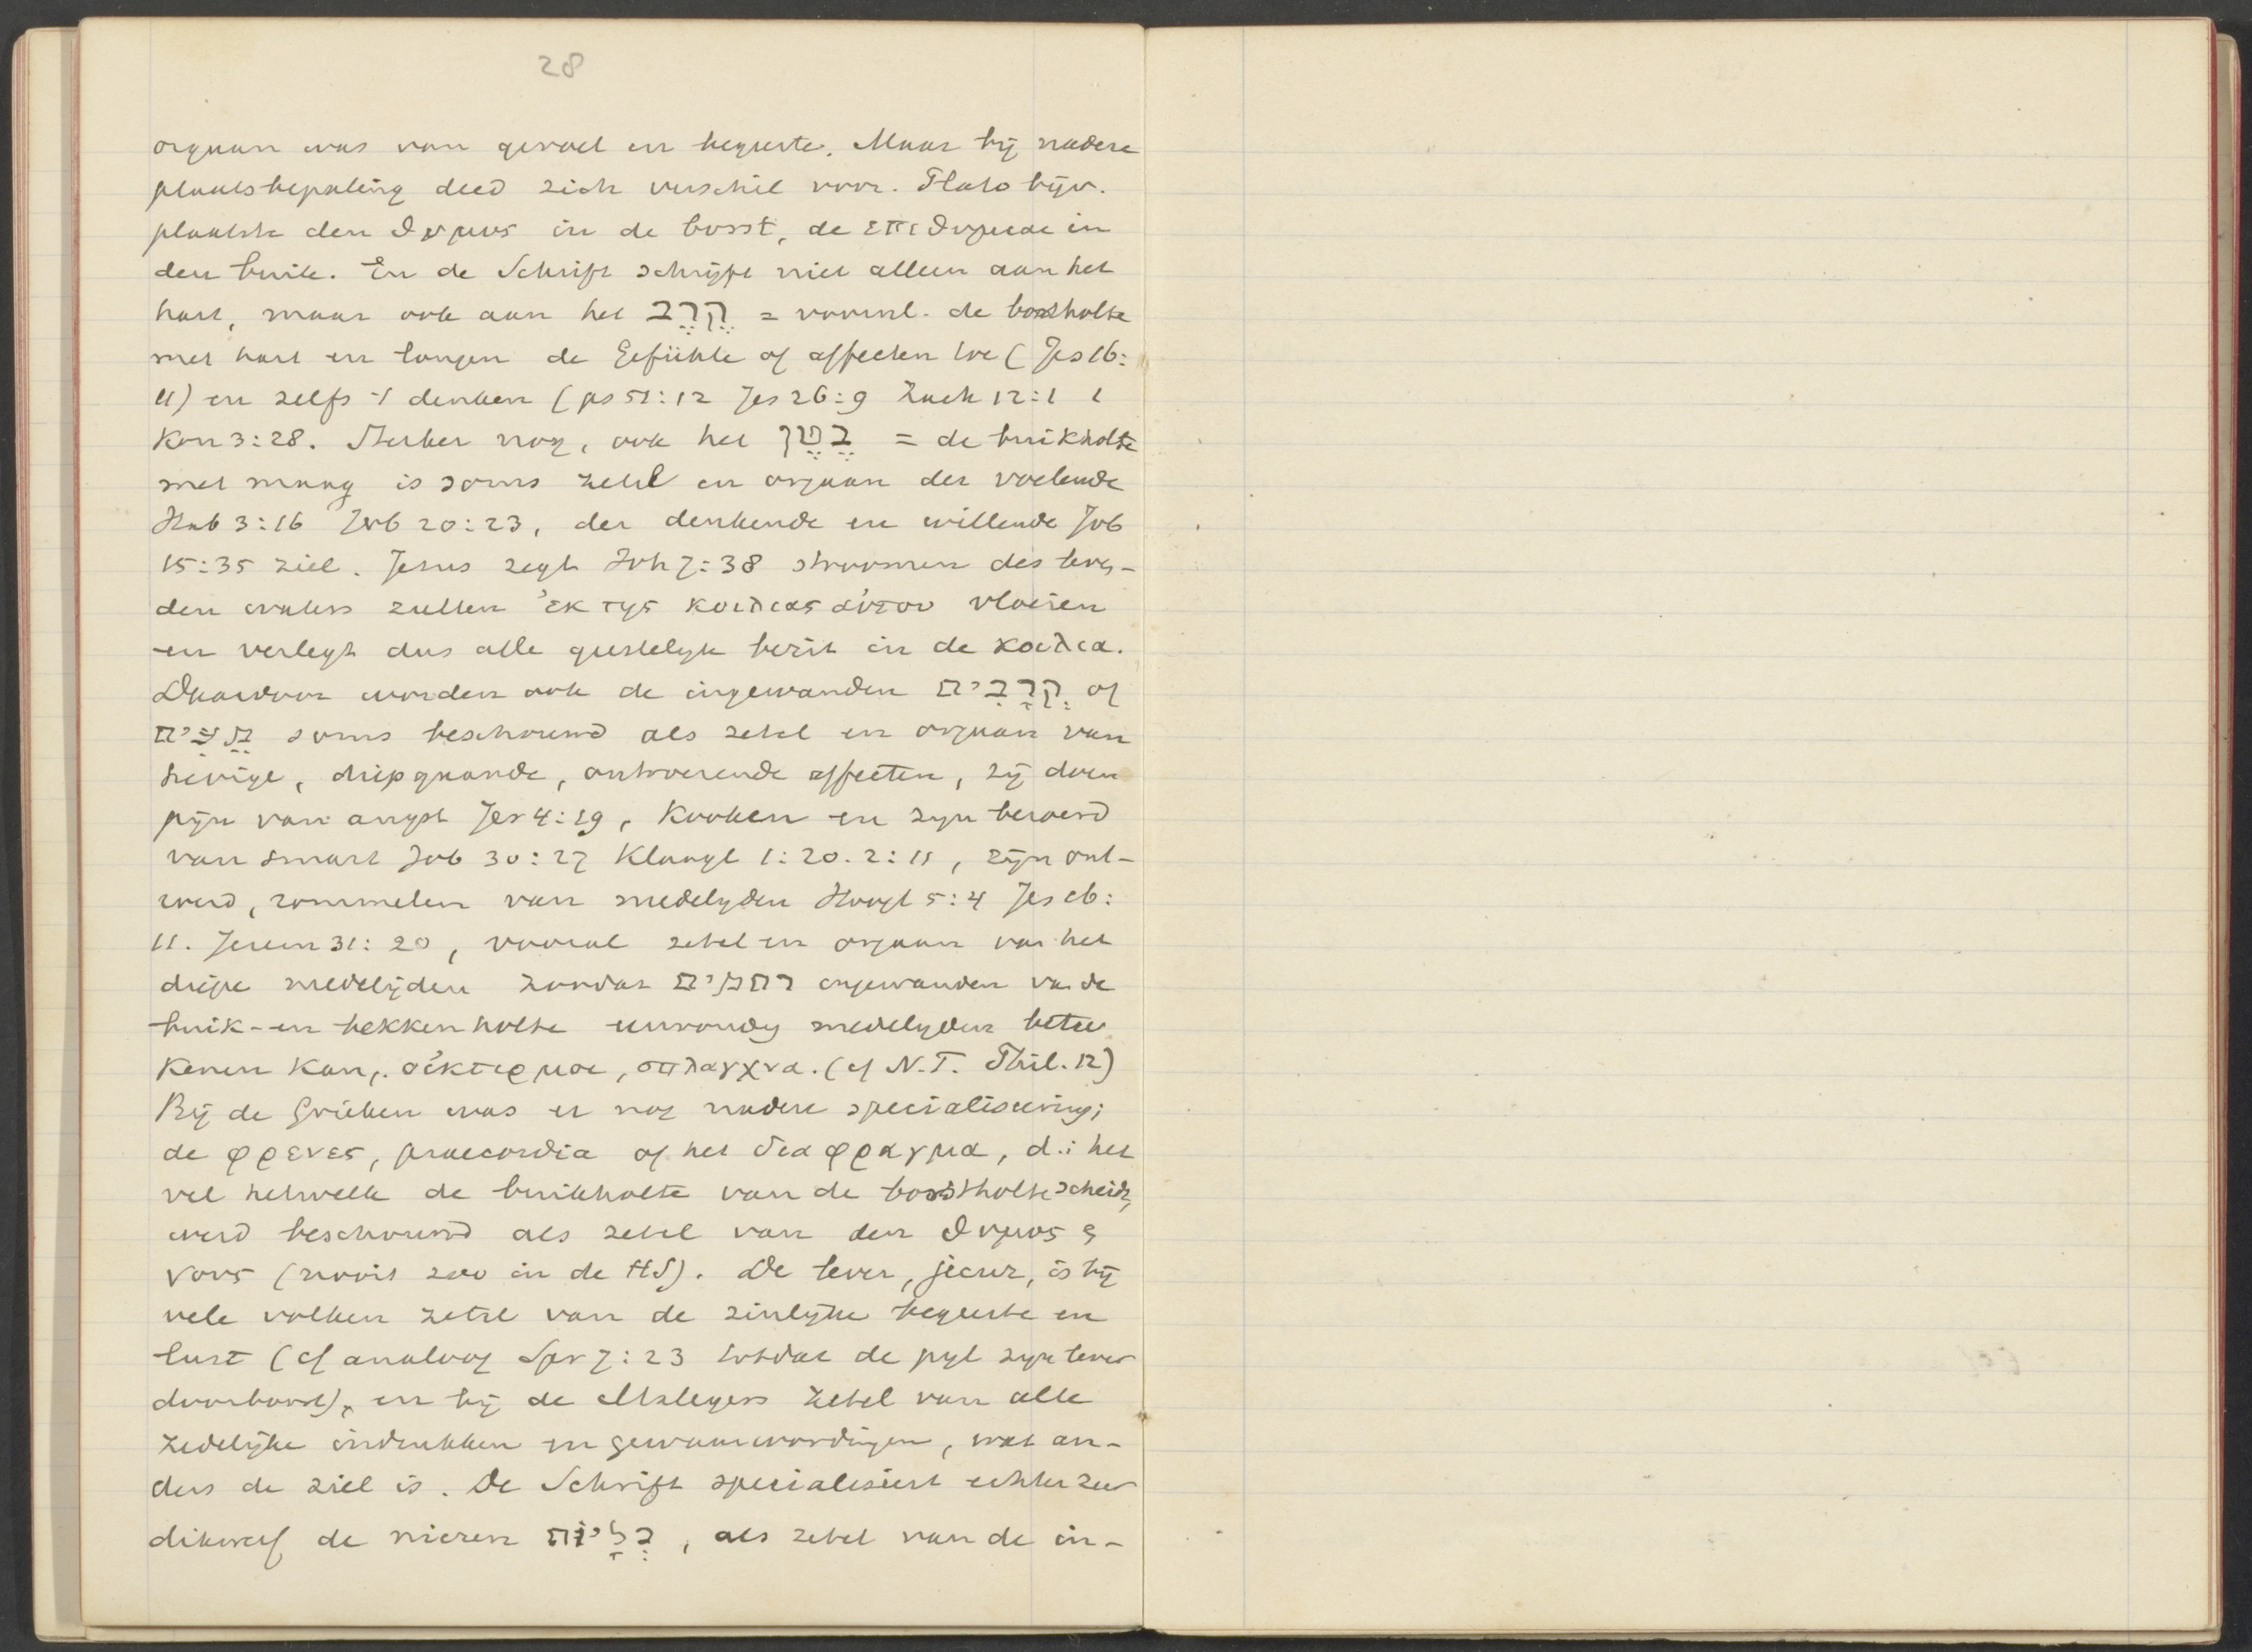 28
orgaan was van gevoel en begeerte. Maar bij nadere
plaatsbepaling deed zich verschil voor. Plato bijv.
plaatste den θυμος in de borst, de επιθυμιαι in
den buik. En de Schrift schrijft niet alleen aan het
hart, maar ook aan het קֶרֶב = voornl. de borstholte
met hart en longen de Gefühle of affecten toe (Jes 16:
11) en zelfs 't denken (ps 51:12 Jes 26:9 Zach 12:1 1
Kon 3:28. Sterker nog, ook het בֶּטֶן = de buikholte
met maag is soms zetel en orgaan der voelende
Hab 3:16 Job 20:23, der denkende en willende Job
15:35 ziel. Jesus zegt Joh 7:38 stroomen des leven-
den waters zullen ἐκ της κοιλιας αὐτου vloeien
en verlegt dus alle geestelijk bezit in de κοιλια.
Daarvoor worden ook de ingewanden קְרָבִים of
מֵעִים soms beschouwd als zetel en orgaan van
hevige, diepgaande, ontroerende affecten, zij doen
pijn van angst Jer 4:19, Kooken en zijn beroerd
van smart Job 30:27 Klaagl 1:20. 2:11, zijn ont-
roerd, rommelen van medelijden Hoogl 5:4 Jes 16:
11. Jerem 31:20, vooral zetel en orgaan van het
diepe medelijden zoodat רחמים ingewanden van de
buik- en bekkenholte eenvoudig medelijden betee
kenen kan, οἰκτιρμοι, σπλαγχνα. (cf N.T. Phil. 12)
Bij de Grieken was er nog nadere specialiseering;
de φρενες, praecordia of het διαφραγμα, d.i het
vel hetwelk de buikholte van de borstholte scheidt,
werd beschouwd als zetel van den θυμος &
νους (nooit zoo in de HS). De lever, jecur, is bij
vele volken zetel van de zinlijke begeerte en
lust (cf analoog Spr 7:23 totdat de pijl zijn lever
doorboort), en bij de Maleyers zetel van alle
zedelijke indrukken en gewaarwordingen, wat an-
ders de ziel is. De Schrift specialiseert echter zeer
dikwerf de nieren כְּלָיוֹת, als zetel van de in-